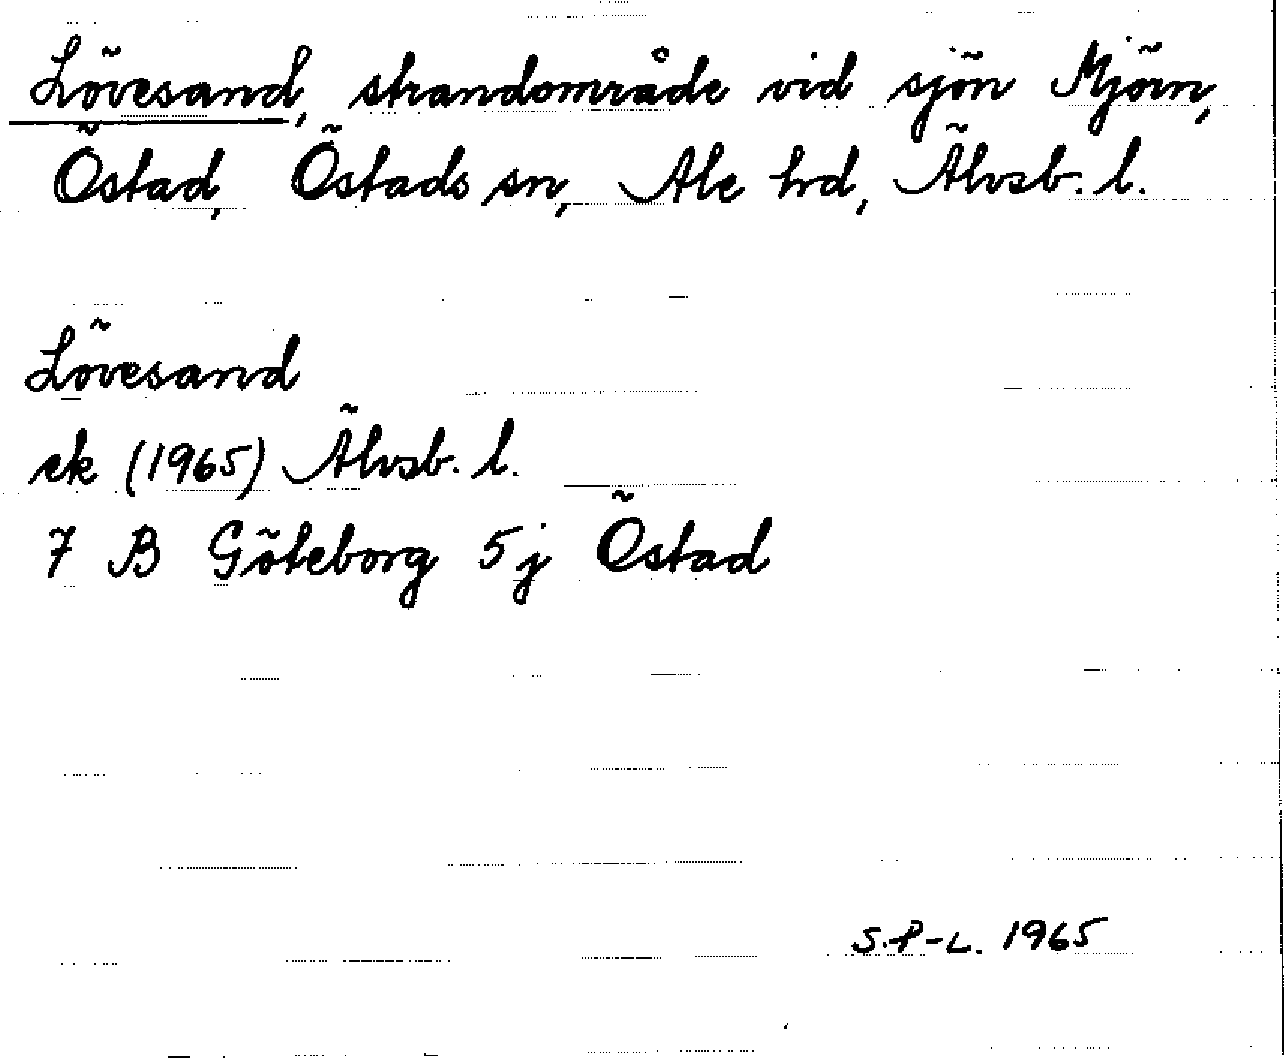 Lövesand, strandområde vid sjön Mjörn,
Östad, Östads sn, Ale hrd, Älvsb. l.
Lövesand
ek (1965) Älvsb. l.
7 B Göteborg 5j Östad
S.P-L. 1965